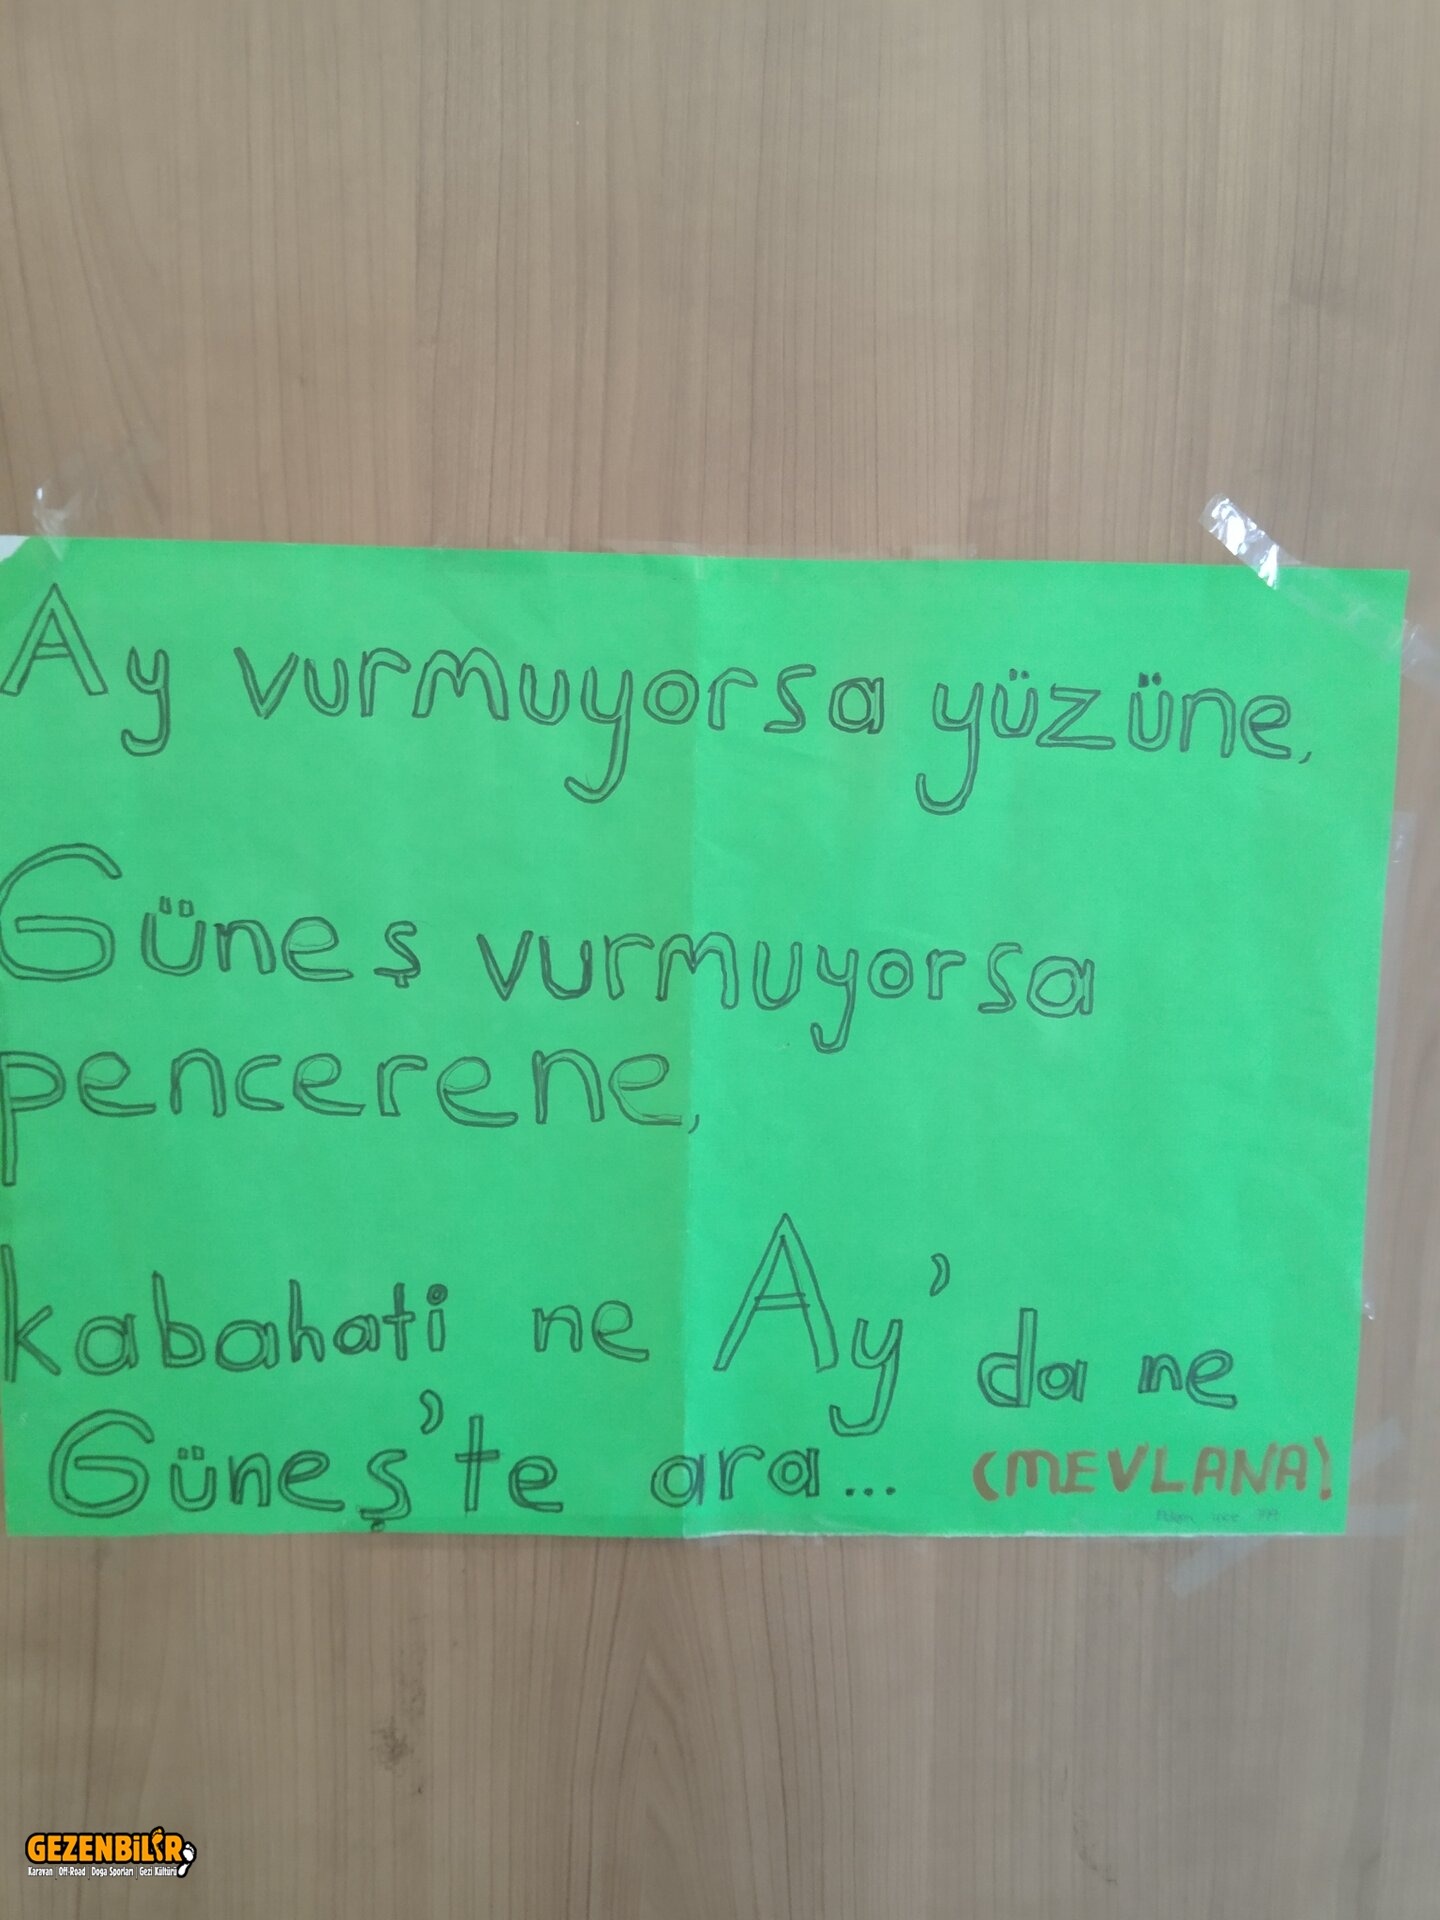 Ay vurmuyorsa yüzüne,
Güneş vurmuyorsa
pencerene,
kabahati ne Ay'da ne
Güneş'te ara... (MEVLANA)
GEZENBİLİR
Karavan Off-Road Doğa Sporları Gezi Kültürü